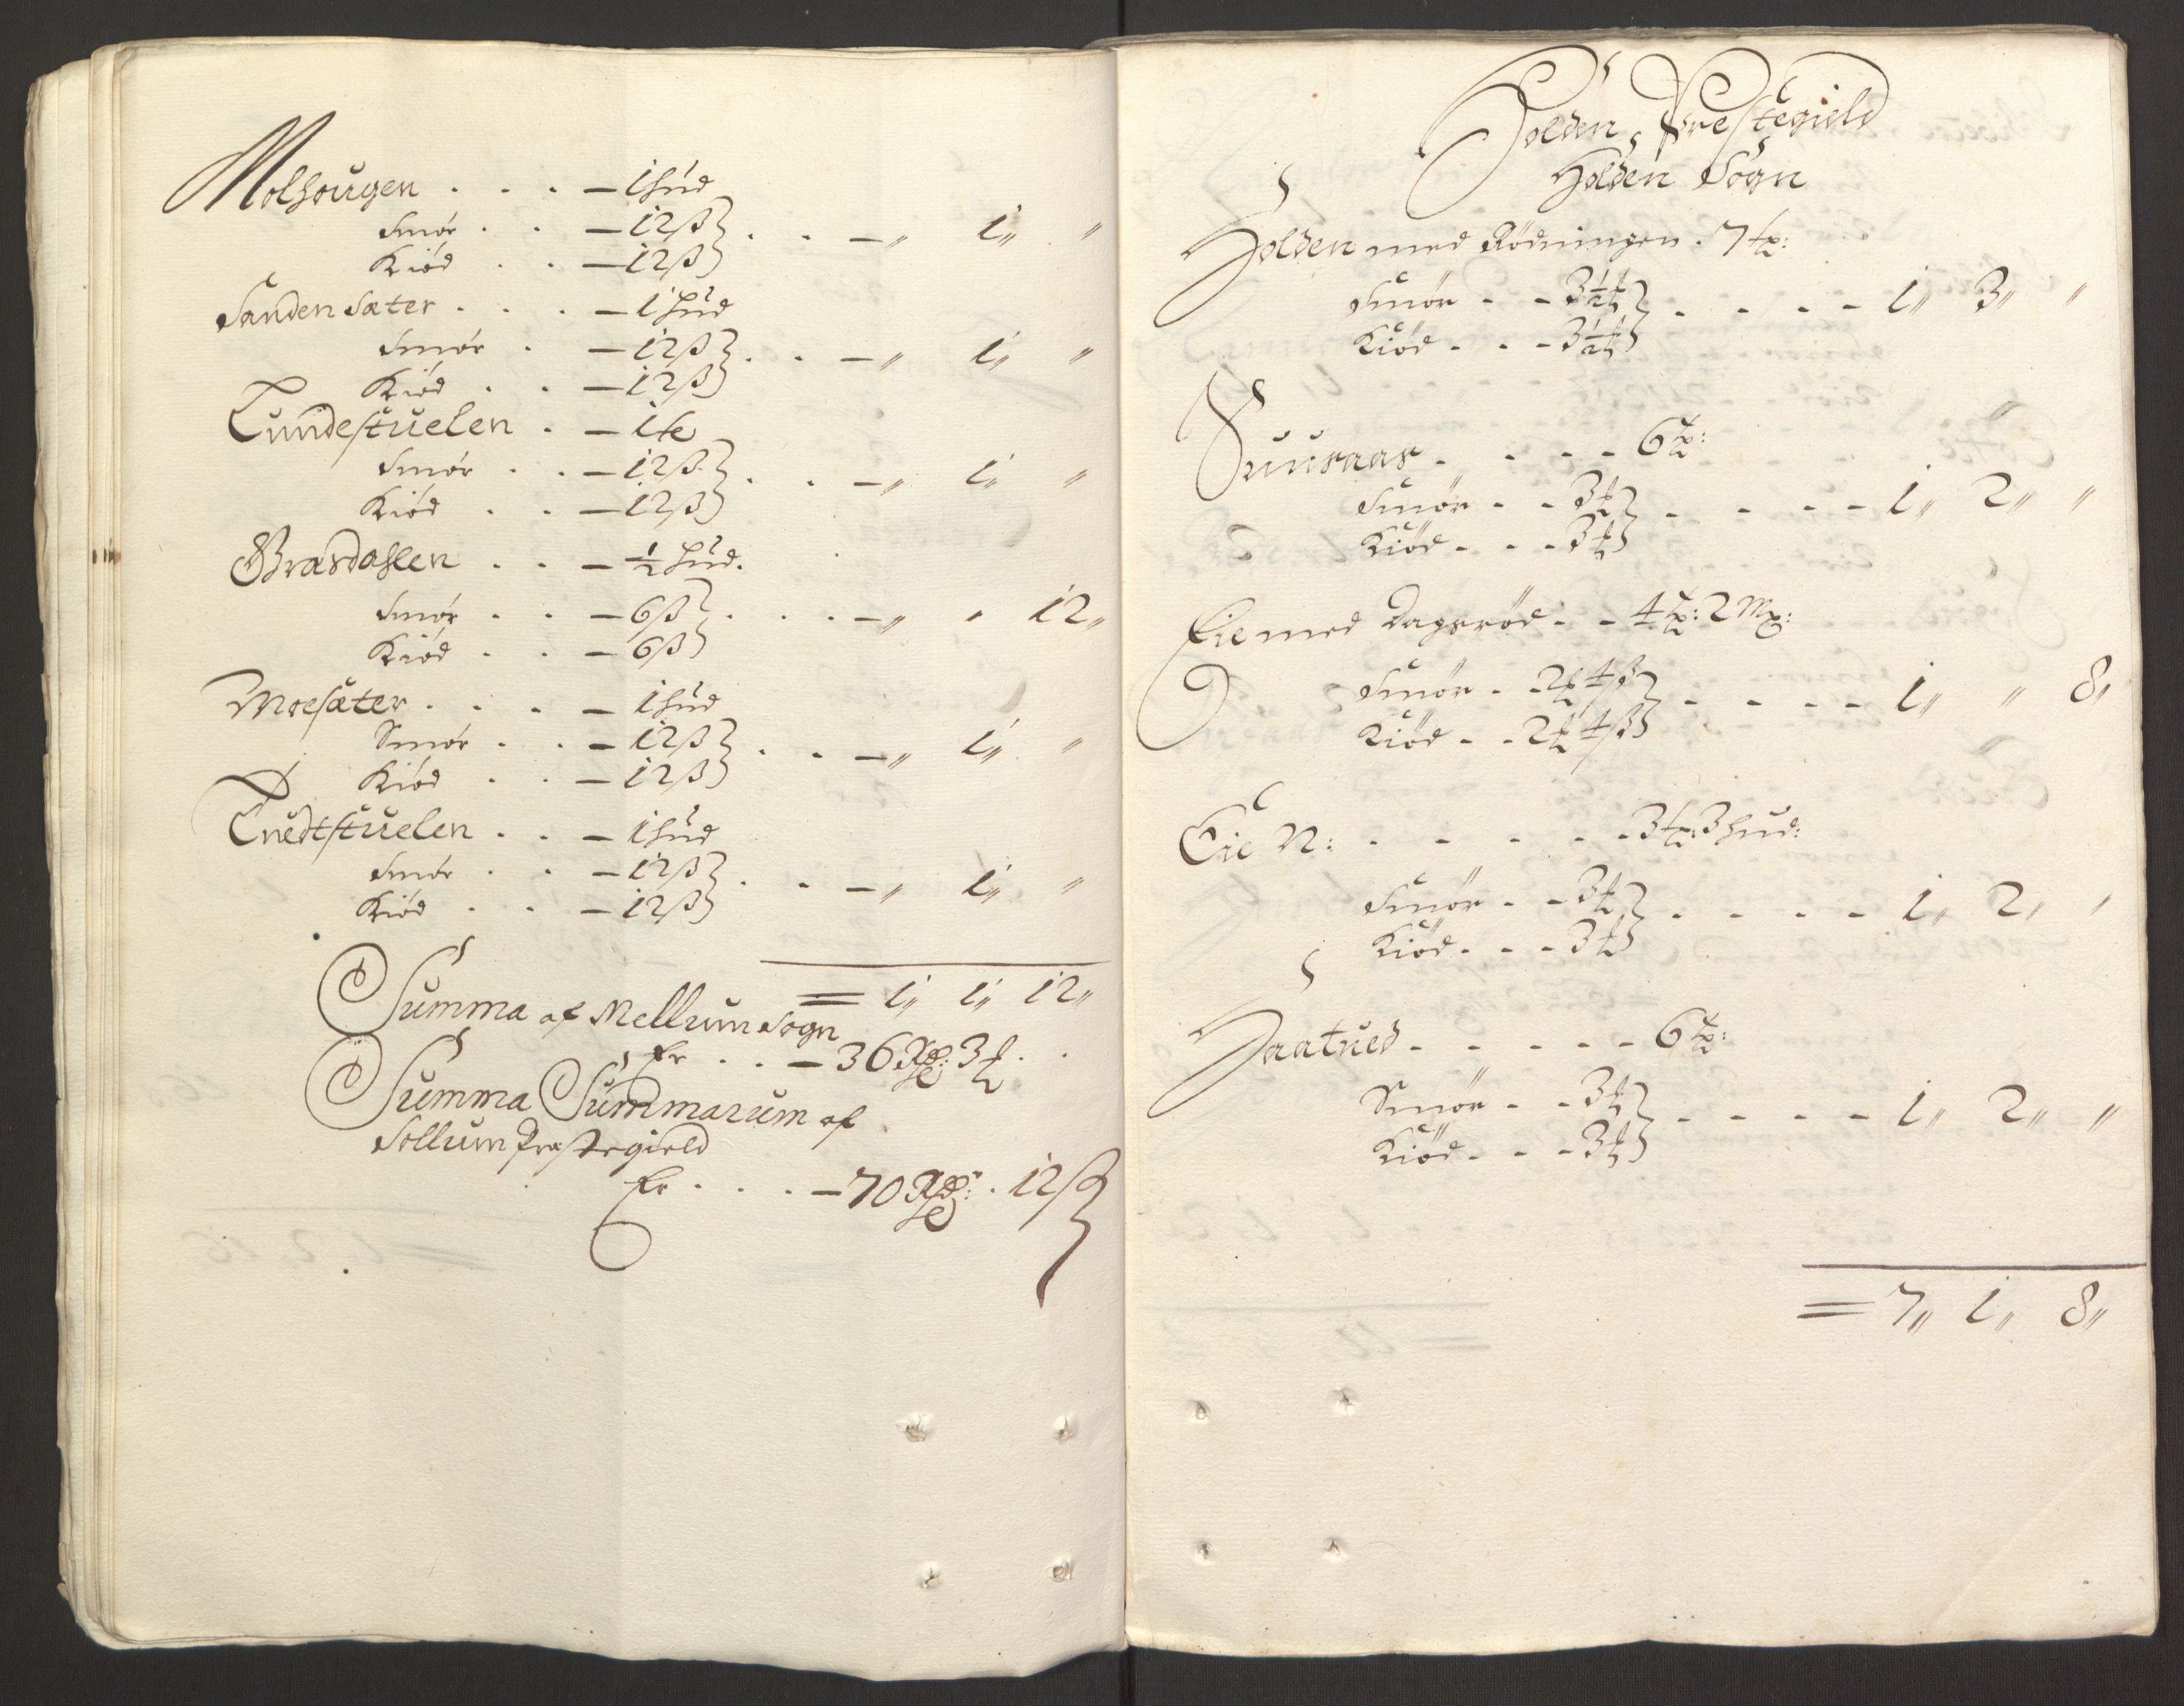 Molhougen . . . — 1 hud
Smør . . — 12 ß
Kiød . . — 12 ß } . . — „ 1 „ „
Sanden Sæter . . . — 1 hud
Smør . — 12 ß
Kiød . . — 12 ß } . . — „ 1 „ „
Tundestuelen . — 1 te
Smør . . — 12 ß
Kiød . . — 12 ß } . . — „ 1 „ „
Brædahlen . . — ½ hud.
Smør . . — 6 ß
Kiød . . — 6 ß } . . . — „ „ 12 „
Moesæter . . . — 1 hud
Smør . . — 12 ß
Kiød . . — 12 ß } . . — „ 1 „ „
Tuedtstuelen . . — 1 hud
Smør . . — 12 ß
Kiød . . — 12 ß } . . — „ 1 „ „
= 1 „ 1 „ 12 „
Summa af Mellum Sogn
Er . . — 36 Rdr: 3 ț . .
Summa Summarum af
Sollum Præstegield
Er . . . — 70 Rdr: . 12 ß
Holden Prestegield
Holden Sogn
Holden med Rödningen . 7 tp:
Smør - - 3½ ț
Kiød - - - 3½ ț } - - - - 1 „ 3 „ „
Suuraas - - - - 6 tp:
Smør - - 3 ț
Kiød - - - 3 ț } - - - - 1 „ 2 „ „
Eie med Dagsröd - - 4 tp: 2 Mp:
Smør - - 2 ț 4 ß
Kiød - - 2 ț 4 ß } - - - - 1 „ „ 8 „
Eie N: - - - - - 3 tp: 3 hud:
Smør - - 3 ț
Kiød - - - 3 ț } - - - - 1 „ 2 „ „
Haatued - - - - - 6 tp:
Smør - - 3 ț
Kiød - - - 3 ț } - - - - 1 „ 2 „ „
= 7 „ 1 „ 8 „